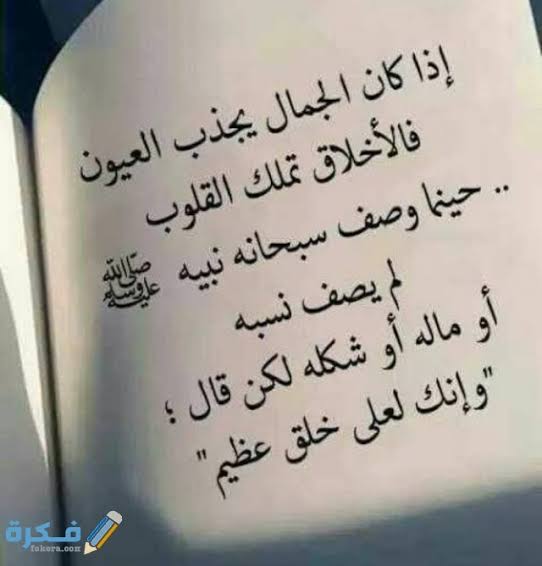 إذا كان الجمال يجذب العيون
فالأخلاق تملك القلوب
.. حينما وصف سبحانه نبيه ﷺ
لم يصف نسبه
أو ماله أو شكله لكن قال ؛
"وإنك لعلى خلق عظيم"
فكرة
fokera.com